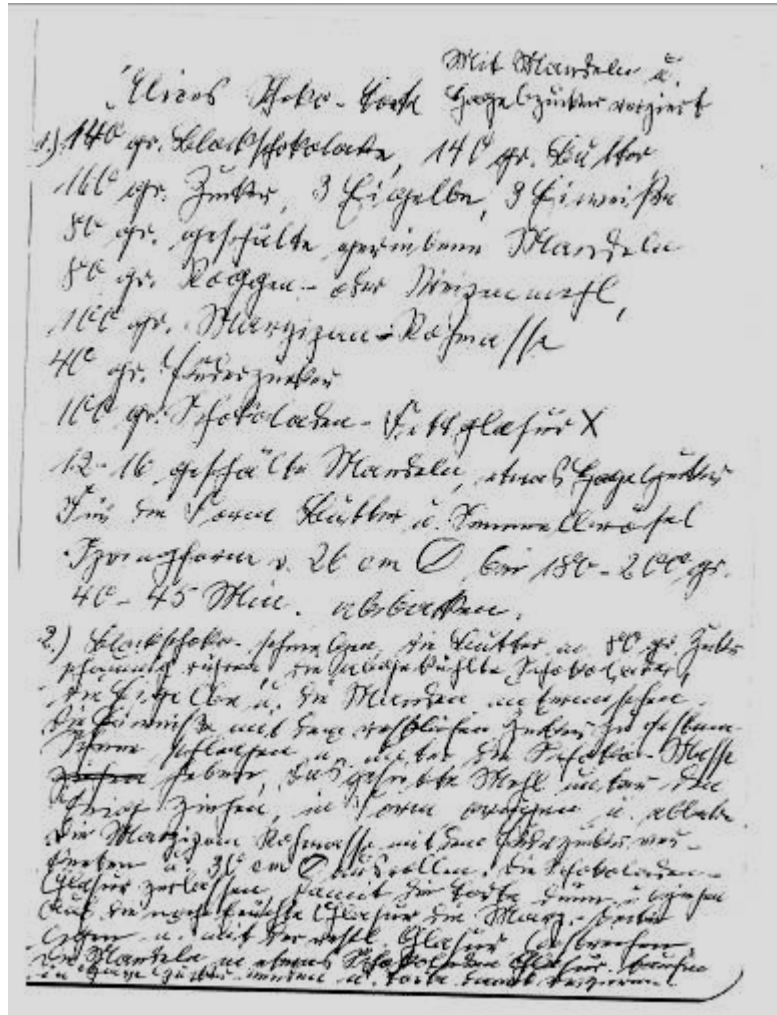 Mit Mandeln u.
Elises Schoko-Torte Hagelzucker verziert
1.) 140 gr. Blockschokolade, 140 gr. Butter
160 gr. Zucker, 3 Eigelbe, 3 Eiweiße
80 gr. geschälte geriebene Mandeln
80 gr. Roggen- oder Weizenmehl,
100 gr. Marzipan-Rohmasse
40 gr. Puderzucker
100 gr. Schokoladen-Fettglasur X
12-16 geschälte Mandeln, etwas Hagelzucker
Für die Form Butter u. Semmelbrösel
Springform v. 26 cm Ø bei 180-200 gr.
40-45 Min. abbacken.
2.) Blockschoko. schmelzen, die Butter m 80 gr. Zucker
schaumig rühren, die abgekühlte Schokolade,
die Eigelbe u. die Mandeln untermischen.
die Eiweiße mit dem restlichen Zucker zu
schlagen u. unter die Schoko-Masse
ziehen heben, das gesiebte Mehl unter den
Teig ziehen, in Form u.
Die Marzipan Rohmasse mit dem Puderzucker ver-
kneten u. cm Ø ausrollen. die Schokoladen-
Glasur zerlassen, damit die Torte dünn
Auf die noch feuchte Glasur die Marz.-
legen u. mit der restl. Glasur bestreichen.
Die Mandeln in etwas Schokoladen Glasur tauchen
in Hagelzucker wenden u. Torte damit verzieren.